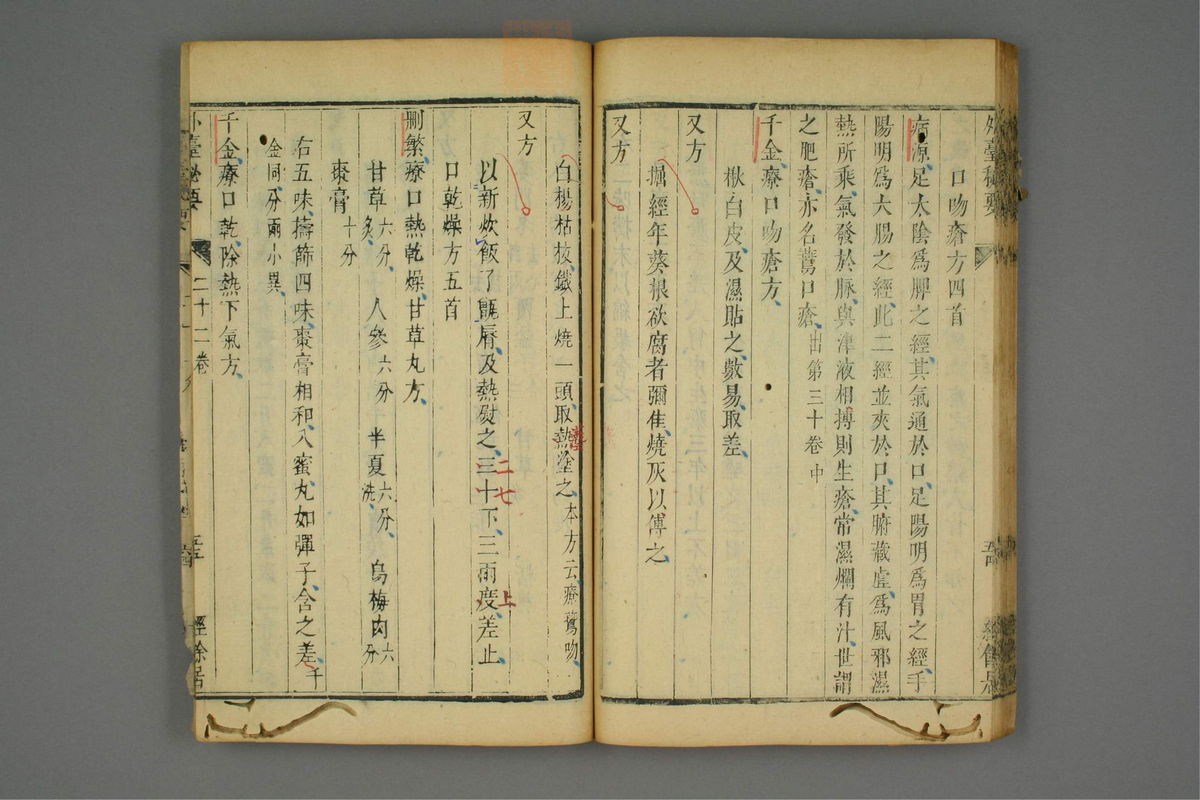 外臺秘要
口吻瘡方四首
病源足太陰爲脾之經其氣通於口足陽明爲胃之經手
陽明爲大腸之經此二經並夾於口其腑藏虛爲風邪濕
熱所乘氣發於脉與津液相搏則生瘡常濕爛有汁世謂
之肥瘡亦名鷰口瘡出第三十卷中
千金療口吻瘡方
楸白皮及濕貼之數易取差
又方
掘經年葵根欲腐者彌佳燒灰以傅之
又方
白楊枯枝鐵上燒一頭取熱塗之本方云療鷰吻
又方
以新炊飯了甑脣及熱熨之三十下三兩度差止
二七
上
口乾燥方五首
刪繁療口熱乾燥甘草丸方
甘草六分炙 人參六分 半夏六分洗 烏梅肉六分
棗膏十分
右五味擣篩四味棗膏相和入蜜丸如彈子含之差千
金同分兩小異
千金療口乾除熱下氣方
外臺秘要 二十二卷 五 經餘居